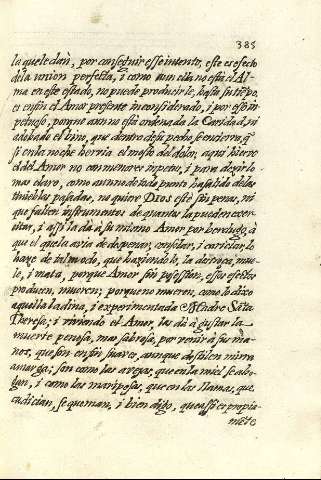 385
lo quele dan, por conseguir esse intento, este es efecto
de la union perfecta, i como aun ella no está el Al-
ma en este estado, no puede producirle, hasta su tiẽpo,
es enfin el Amor presente inconsiderado, i por esso im
petuoso, porque aun no esta ordenada la Caridad, ni
adobado el vino, que dentro de su pecho, se encierra, q̃
si en la noche hervia el mosto del dolor, aqui hierve
el del Amor no con menores impetus, i para dezirlo
mas claro, como aun no de todo punto ha salido de las
tinieblas pasadas, no quiere Dios esté sin penas, ni
que falten instrumentos de quantos la pueden exer-
citar, i assi la dà a su mismo Amor por berdugo, à
que el que la avia de despenar, consolar, i cariciar, lo
haze de tal modo, que haziendolo, la
lo, i mata, porque Amor sin possession, essos efectos
producen, mueren; porque no mueren, como lo dixo
aquella ladina, i experimentada Madre Sãta
Theresa; i viviendo el Amor, las dà à gustar la
muerte penosa, mas sabrosa, por venir à sus ma-
nos, que son en fin suaves, aunque destilen mirra
amarga; son como las avejas, que en la miel se aho-
gan, i como las mariposas, que en las llamas, que
cudician, se queman, i bien digo, que assi es propia-
mẽte